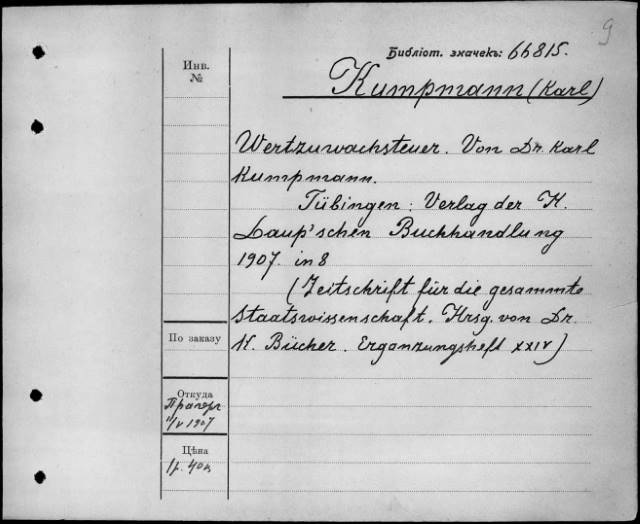 9
Библіот. значекъ: 66815.
Инв.
№
Kumpmann (Karl)
Wertzuwachsteuer. Von Dr. Karl
Kumpmann.
Tübingen: Verlag der H.
Laup'schen Buchhandlung
1907. in 8
(Zeitschrift für die gesammte
Staatswissenschaft. Hrsg. von Dr.
K. Bücher. Erganzungsheft XXIV)
По заказу
Откуда
Прагеръ
11/V 1907
Цѣна
1р. 40к